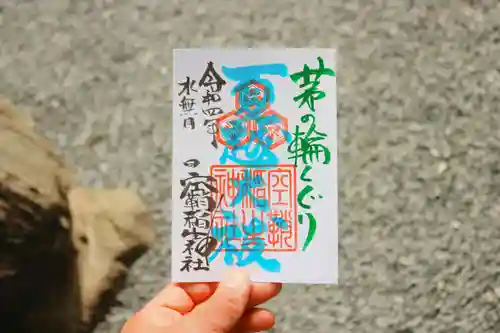 茅の輪くぐり
夏越大祓
令和四年
水無月
空鞘稲生神社